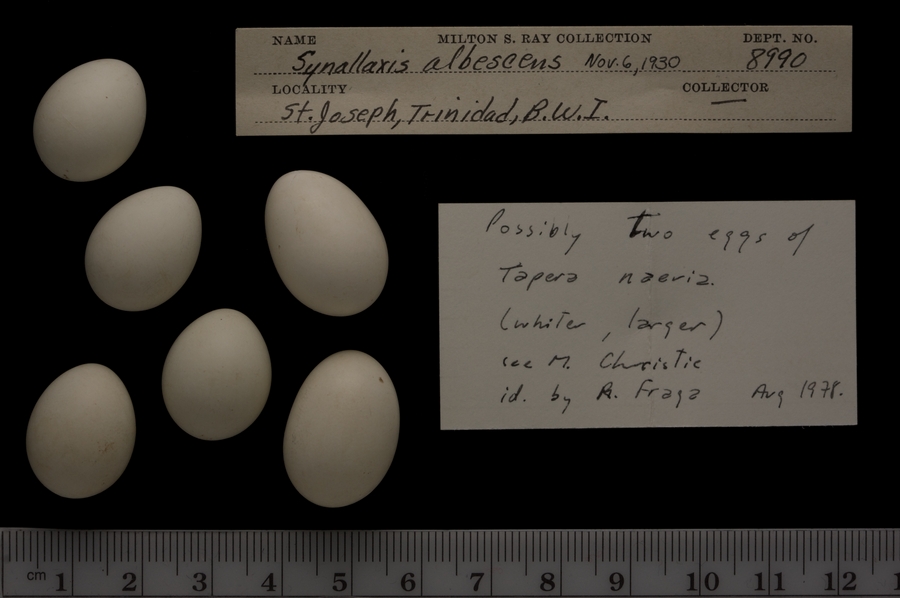 NAME MILTON S. RAY COLLECTION DEPT. NO.
Synallaxis albescens Nov. 6, 1930 8990
LOCALITY COLLECTOR
St. Joseph, Trinidad, B.W.I. —
Possibly Two eggs of
Tapera naevia.
(whiter, larger)
see M. Christie
id. by R. Fraga Aug 1978.
cm 1 2 3 4 5 6 7 8 9 10 11 12